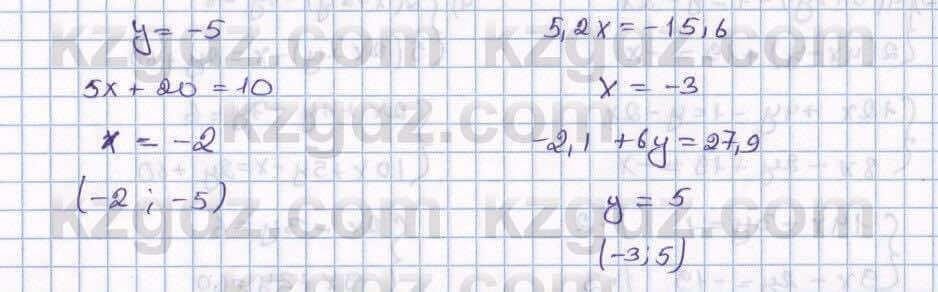 y = -5
5x + 20 = 10
x = -2
(-2 ; -5)
5,2x = -15,6
x = -3
-2,1 + 6y = 27,9
y = 5
(-3; 5)
kzgdz.com
kzgdz.com
kzgdz.com
kzgdz.com
kzgdz.com